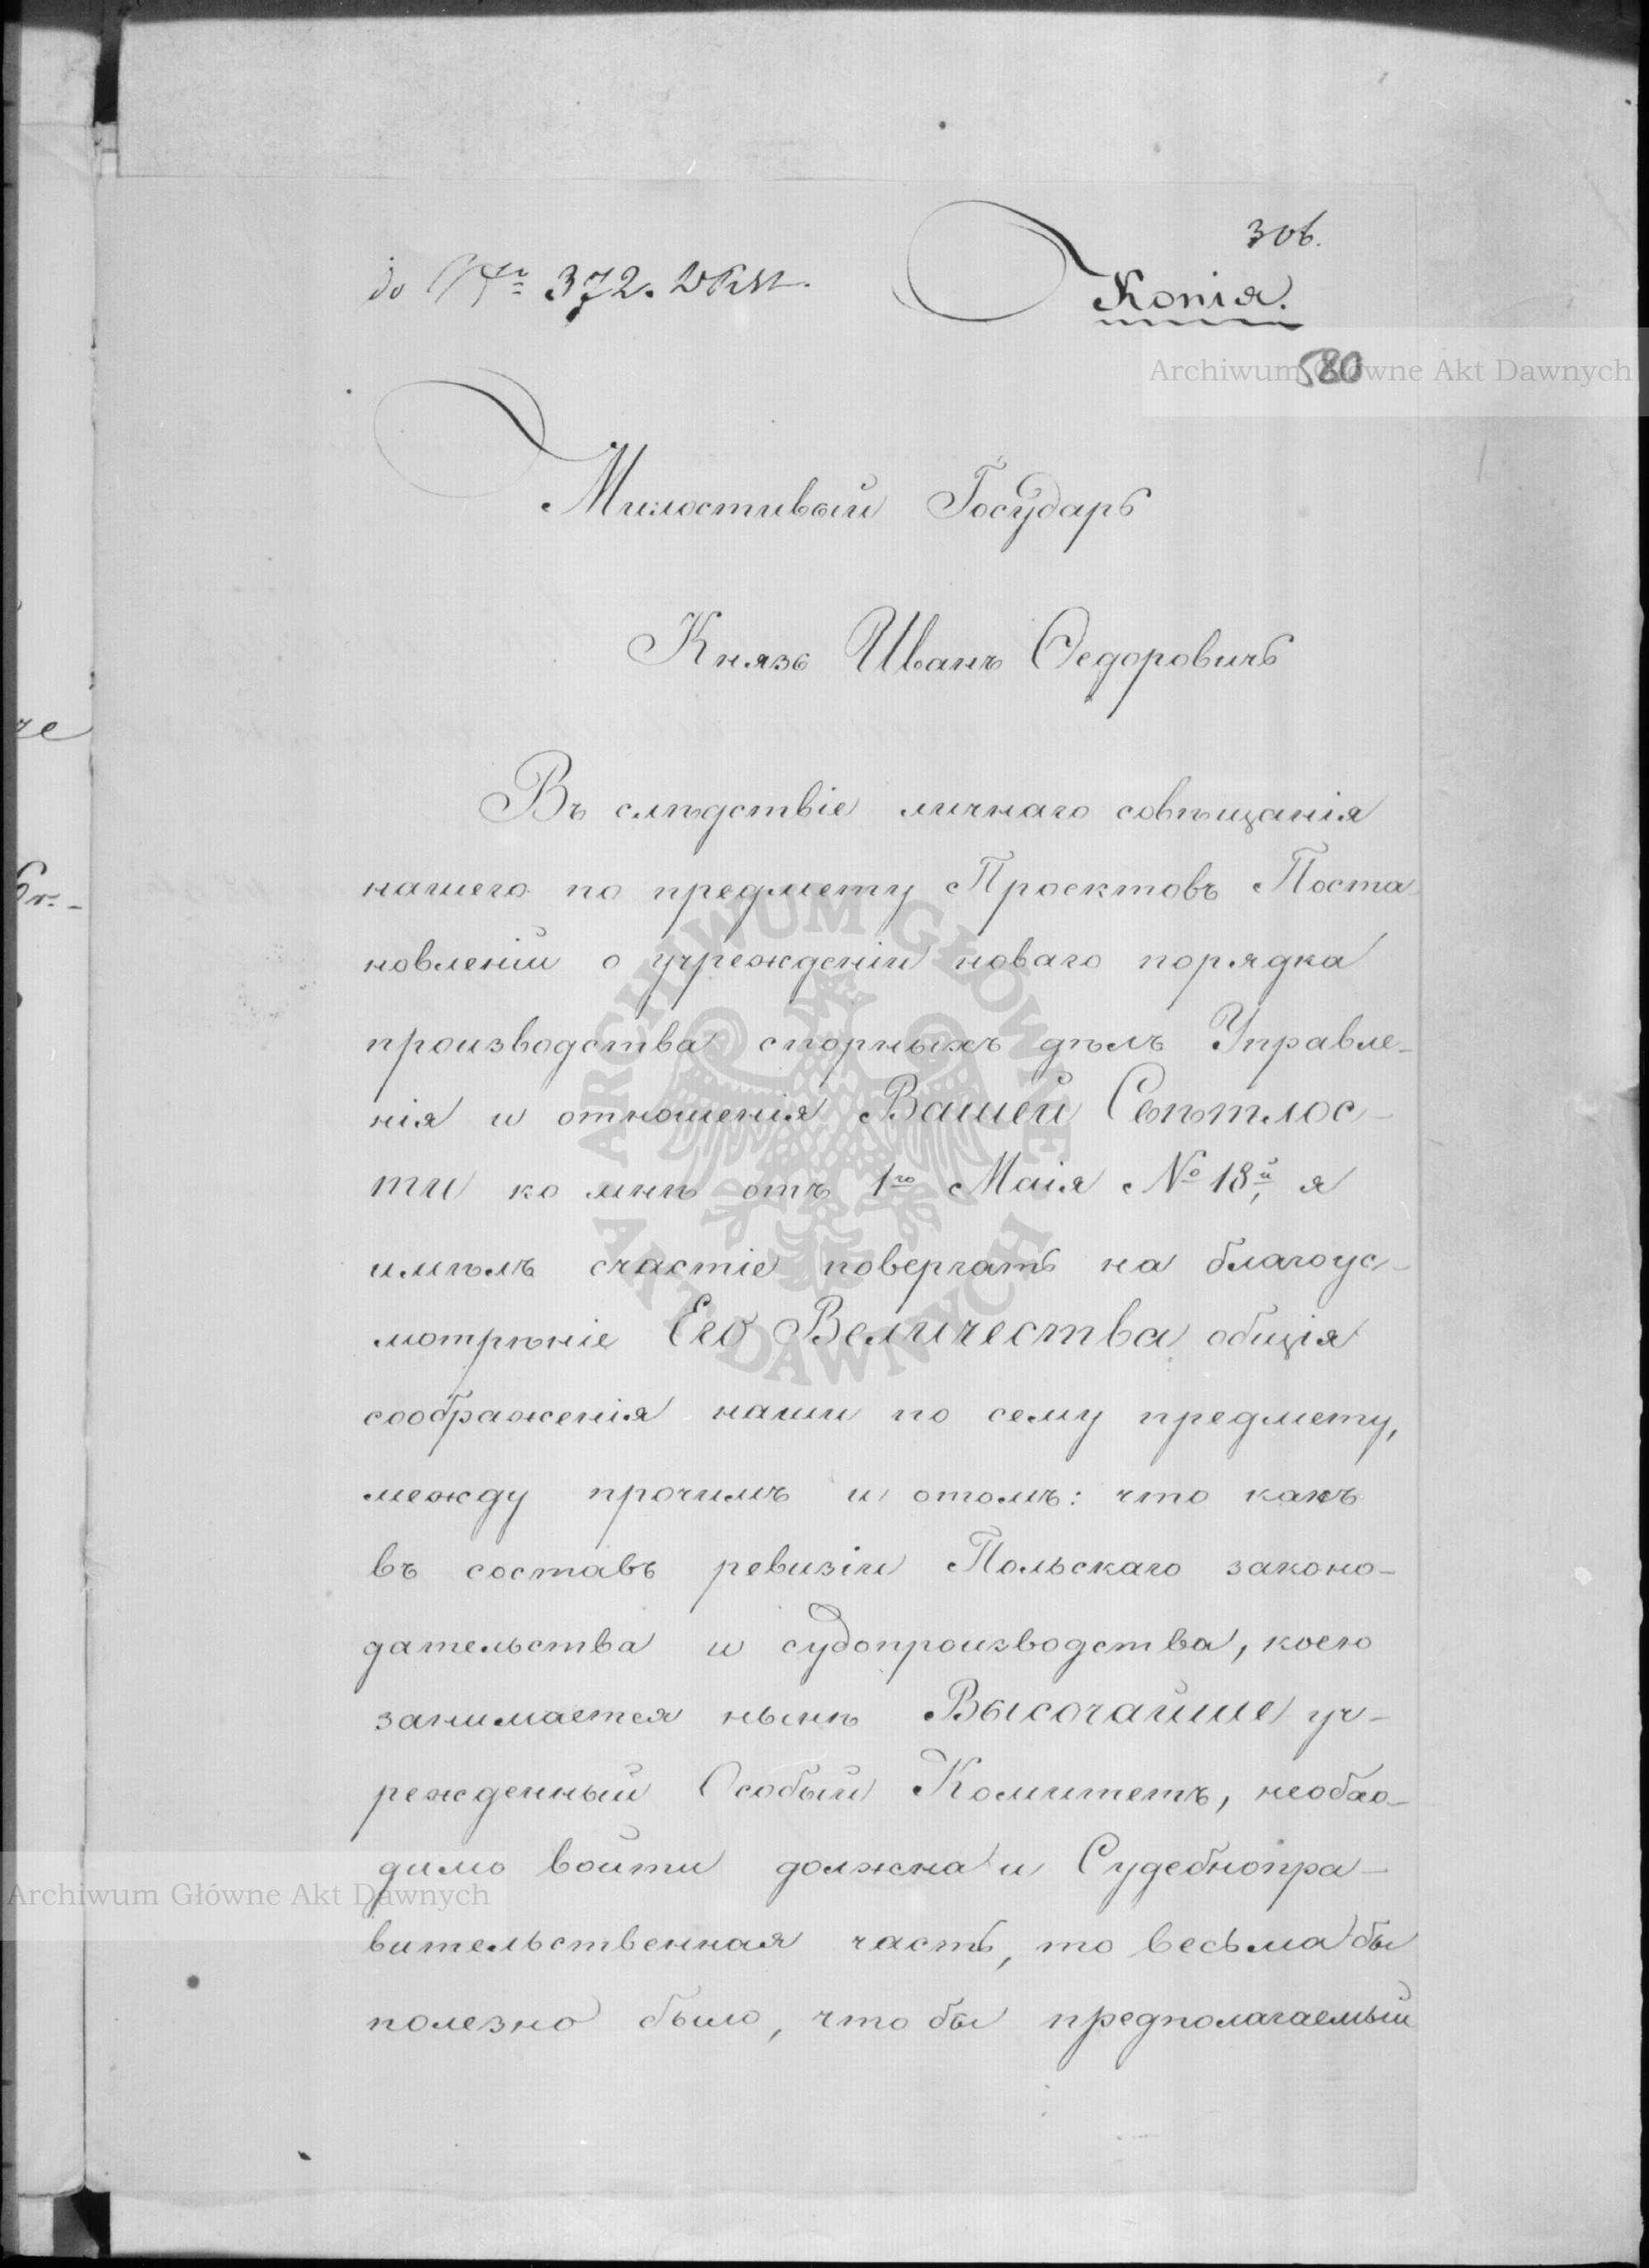 306.
do Nr 372.
Копія.
580
Милостивый Государь
Князь Иванъ Ѳедоровичь
Въ слѣдствіе личнаго совѣщанія
нашего по предмету Проектовъ Поста-
новленій о учрежденіи новаго порядка
производства спорныхъ дѣлъ Управле-
нія и отношенія Вашей Свѣтлос-
ти ко мнѣ отъ 1го Маія № 18й, я
имѣлъ счастіе повергать на благоус-
мотрѣніе Его Величества общія
соображенія наши по сему предмету,
между прочимъ и отомъ: что какъ
въ составъ ревизіи Польскаго законо-
дательства и судопроизводства, коею
занимается нынѣ Высочайше уч-
режденный Особый Комитетъ, необхо-
димо войти должна и Судебнопра-
вительственная часть, то весьма бы
полезно было, что бы предполагаемый
Archiwum Główne Akt Dawnych
ARCHIWUM GŁÓWNE AKT DAWNYCH
Archiwum Główne Akt Dawnych